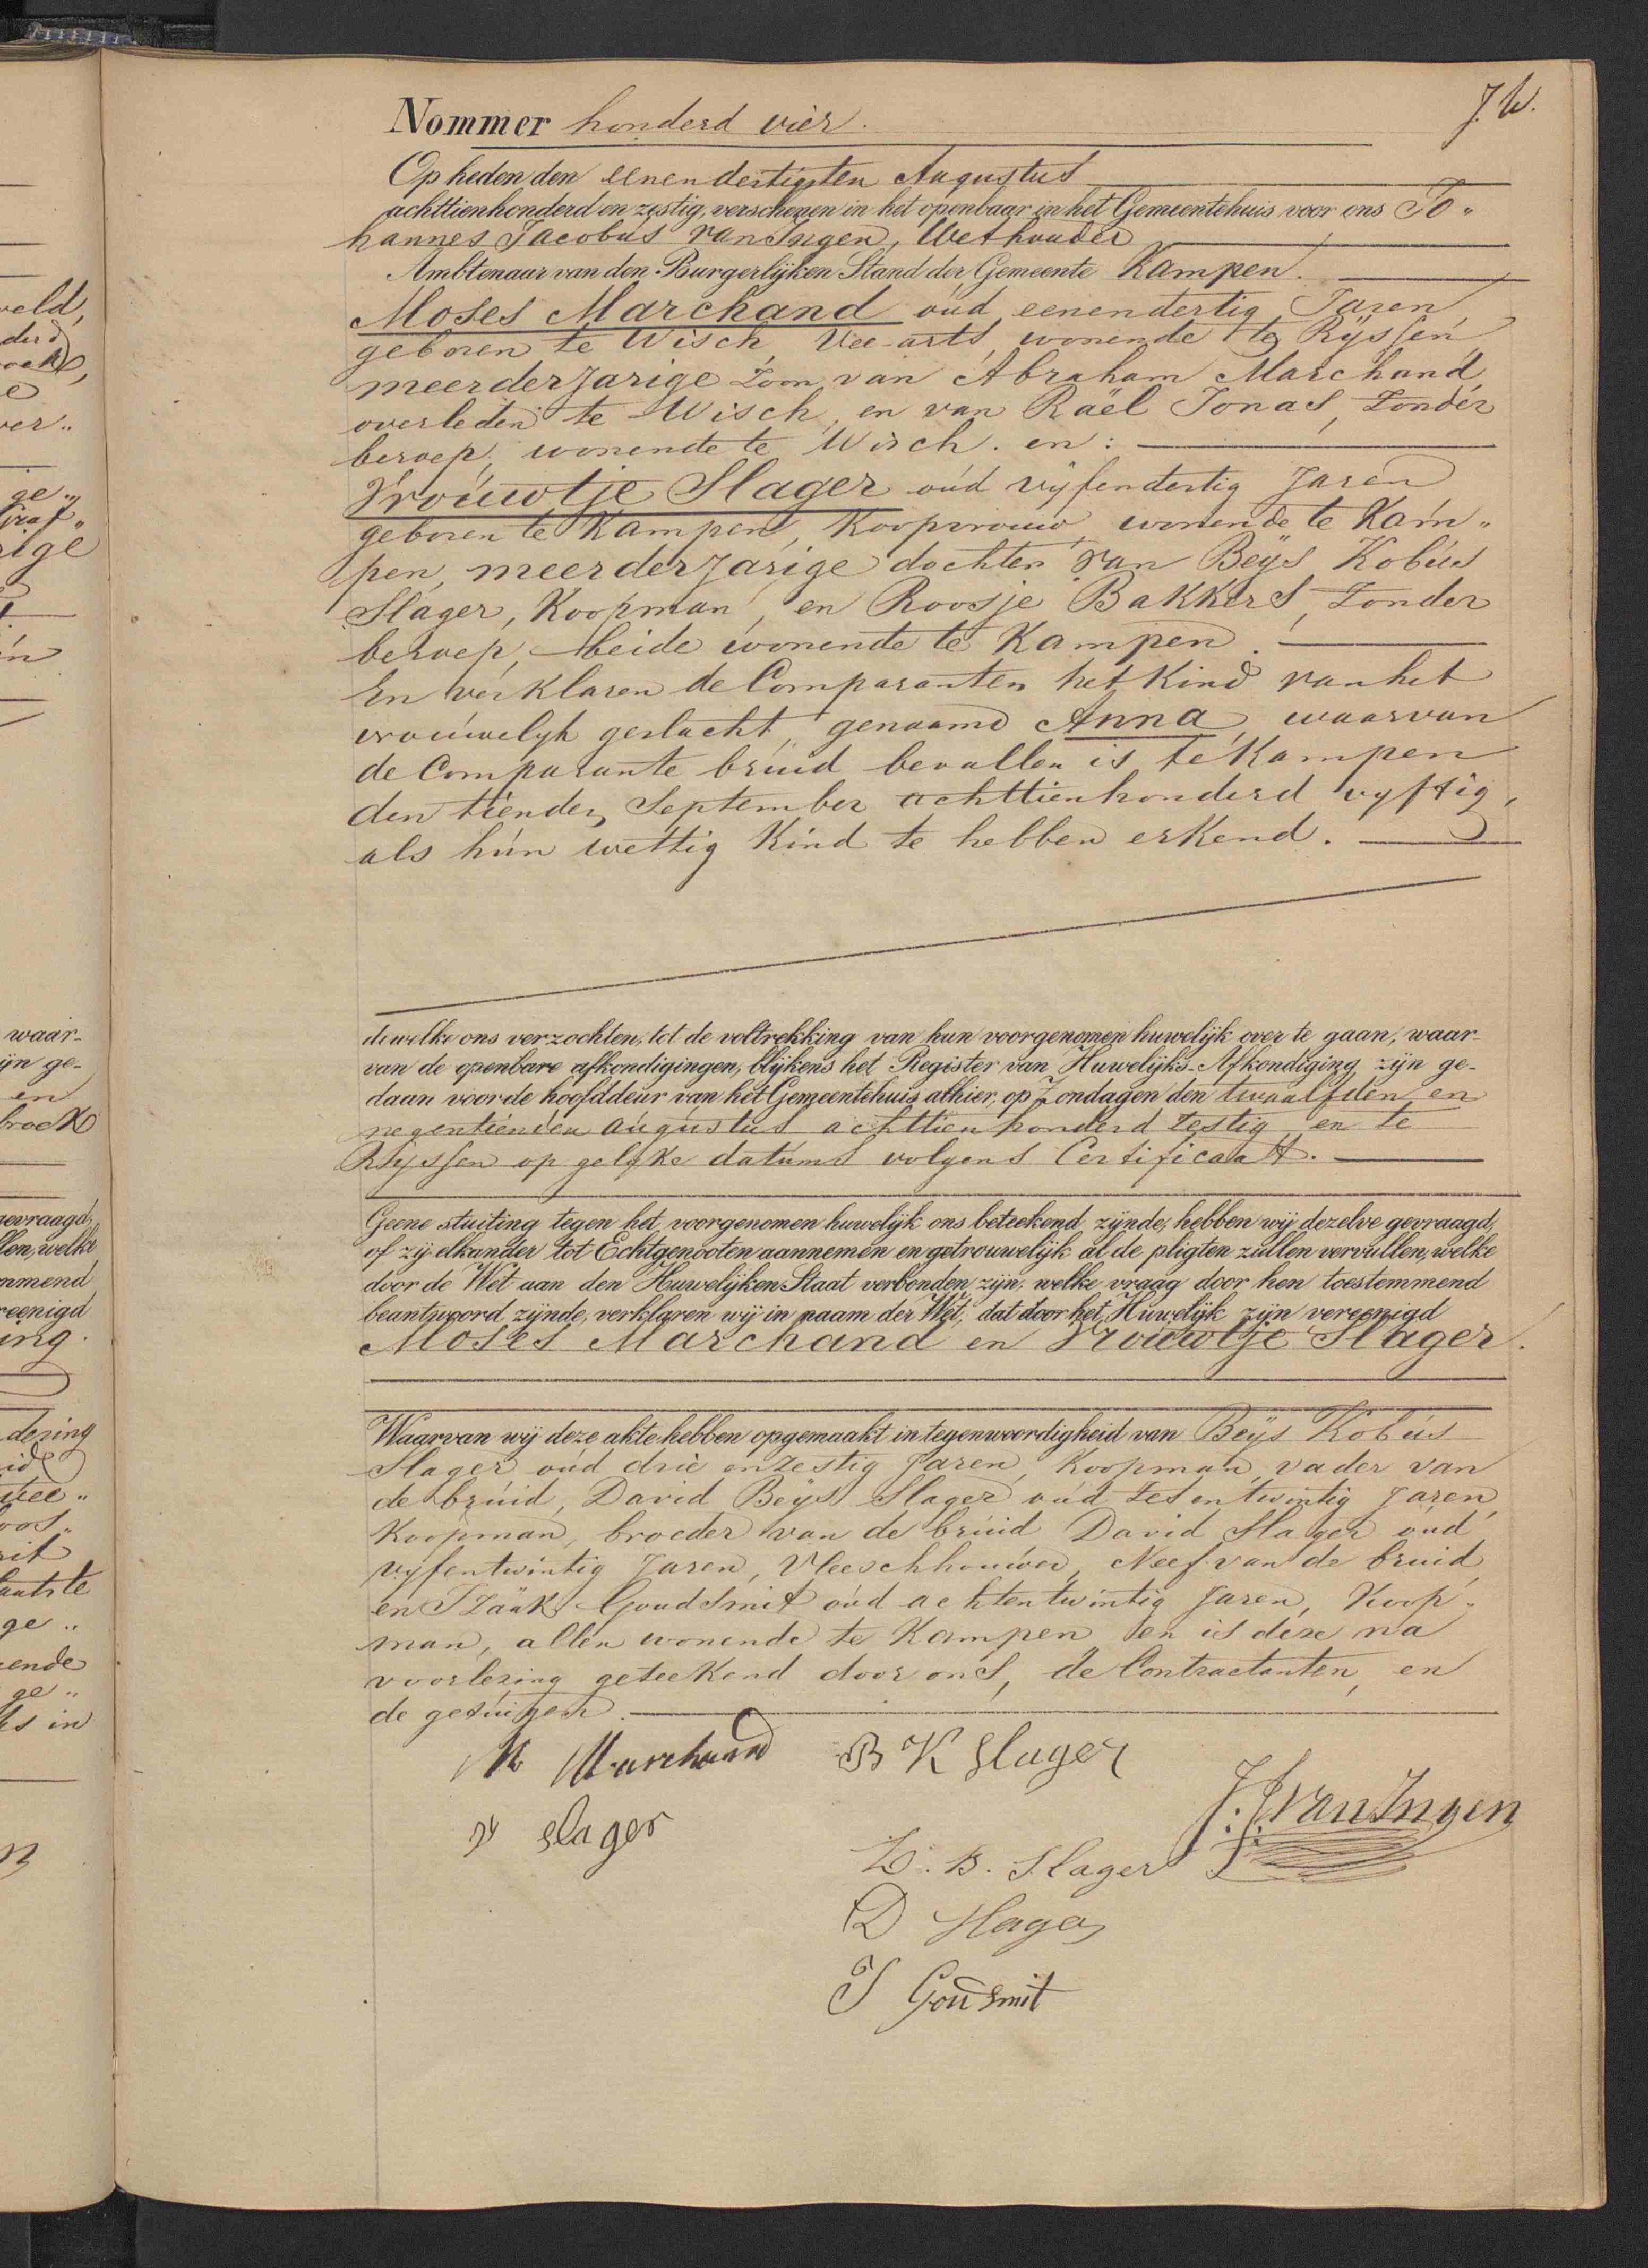 J. W.
Nommer honderd vier.
Op heden den eenendertigsten Augustus
achttienhonderd en zestig, verschenen in het openbaar in het Gemeentehuis voor ons Jo„
hannes Jacobus van Ingen, Wethouder
Ambtenaar van den Burgerlijken Stand der Gemeente Kampen.
Moses Marchand oud eenendertig Jaren,
geboren te Wisch, Vee-arts, wonende te Ryssen
meerderjarige Zoon van Abraham Marchand
overleden te Wisch, en van Raël Jonas, Zonder
beroep, wonende te Wisch. en:
Vrouwtje Slager oud vyfendertig Jaren
geboren te Kampen, Koopvrouw, wonende te Kam„
pen, meerderjarige dochter van Beijs Kobus
Slager, Koopman, en Roosje Bakkers, Zonder
beroep, beide wonende te Kampen.
En verklaren de Comparanten het Kind van het
vrouwelyk geslacht, genaamd Anna, waarvan
de Comparante bruid bevallen is te Kampen
den tienden September achttienhonderd vyftig,
als hun wettig Kind te hebben erkend.
dewelke ons verzochten, tot de voltrekking van hun voorgenomen huwelijk over te gaan, waar-
van de openbare afkondigingen, blijkens het Register van Huwelijks-Afkondiging zijn ge-
daan voor de hoofddeur van het Gemeentehuis alhier, op Zondagen den twaalfden en
negentienden augustus achttienhonderd zestig en te
Ryssen op gelyke datums volgens Certificaat.
Geene stuiting tegen het voorgenomen huwelijk ons beteekend zijnde, hebben wij dezelve gevraagd,
of zij elkander tot Echtgenooten aannemen en getrouwelijk al de pligten zullen vervullen, welke
door de Wet aan den Huwelijken Staat verbonden zijn, welke vraag door hen toestemmend
beantwoord zijnde, verklaren wij in naam der Wet, dat door het Huwelijk zijn vereenigd
Moses Marchand en Vrouwtje Slager.
Waarvan wij deze akte hebben opgemaakt in tegenwoordigheid van Beijs Kobus
Slager oud drie en zestig Jaren, Koopman, vader van
de bruid, David Beijs Slager oud zes en twintig Jaren,
Koopman, broeder van de bruid David Slager oud
vyfentwintig Jaren, Vleeschhouwer, Neef van de bruid
en Izaäk Goudsmit oud achtentwintig Jaren, Koop„
man, allen wonende te Kampen en is deze na
voorlezing geteekend door ons, de Contractanten, en
de getuigen.
M Marchand B K Slager
V slager J. J. van Ingen
D. B. Slager
D Slager
I Gousmit